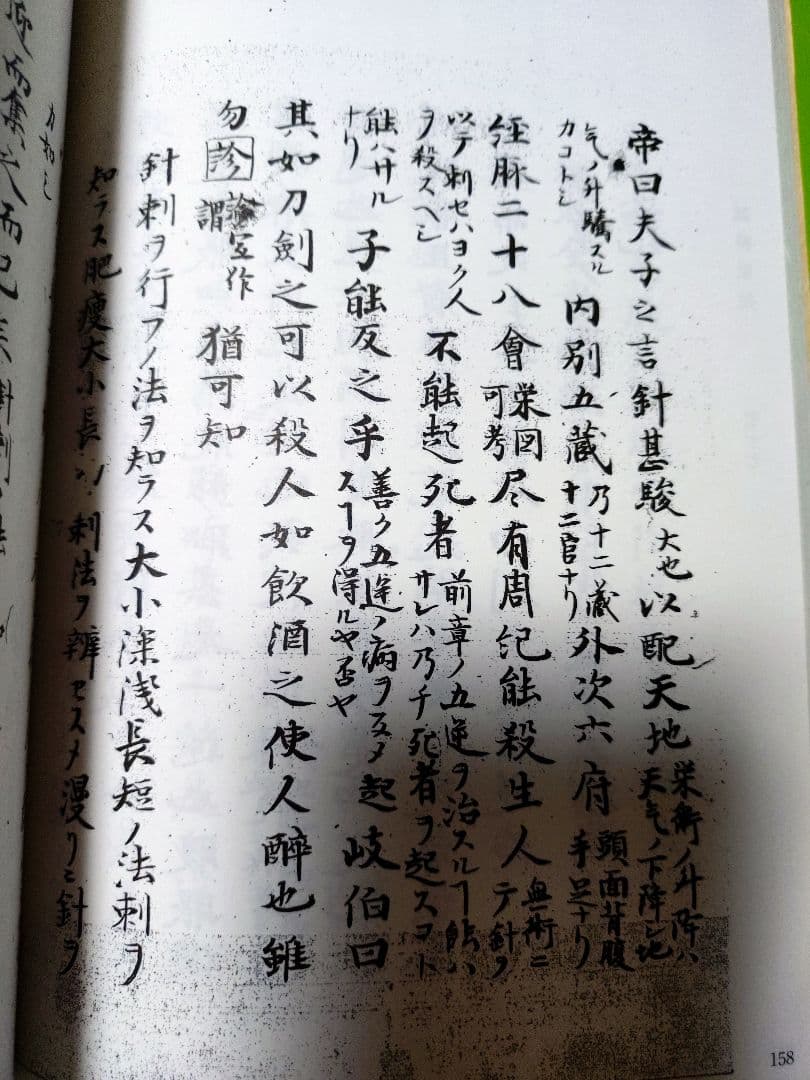 帝曰夫子之言針甚駿大也以配天地栄衛ノ升降ハ天気ノ下降シ地
気ノ升騰スルカコトシ内別五蔵乃十二蔵十二官ナリ外次六府頭面背腹手足ナリ
経脉二十八會栄図可考尽有周紀能殺生人無術ニテ針ヲ
以テ刺セハヨク人ヲ殺スヘシ不能起死者前章ノ五逆ヲ治スルヿ能ハサレハ乃チ死者ヲ起スコト
能ハサルナリ子能反之乎善ク五逆ノ病ヲ反メ起スヿヲ得ルヤ否ヤ岐伯曰
其如刀劍之可以殺人如飲酒之使人醉也雖
勿診診宜作謂猶可知
針刺ヲ行フノ法ヲ知ラス大小深浅長短ノ法刺ヲ
知ラス肥痩大小長 刺法ヲ辨セスメ漫リニ針ヲ
158